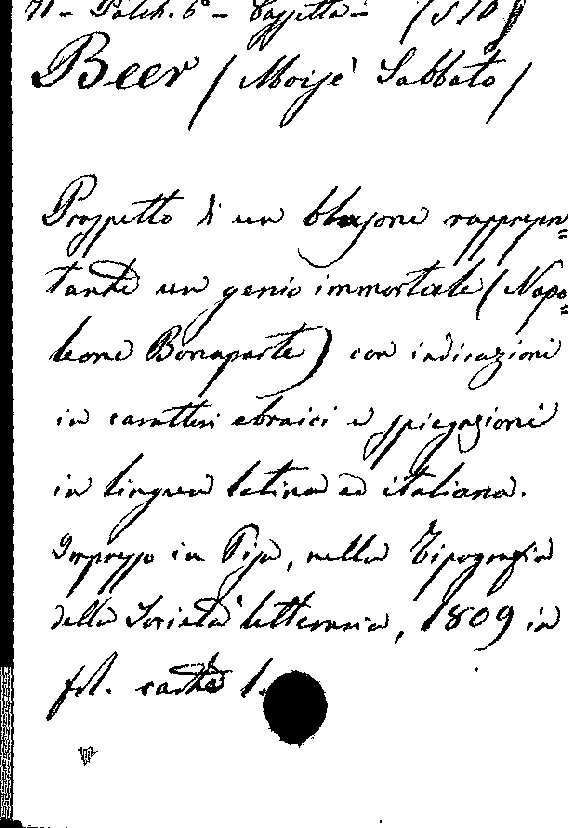 71 - Palch. 6° - Cassetta - (510)
Beer (Moisè Sabbato)
Prospetto di un blasone rappresen=
tante un genio immortale (Napo=
leone Bonaparte) con indicazioni
in caratteri ebraici e spiegazioni
in lingua latina ed italiana.
Impresso in Pisa, nella Tipografia
della Società letteraria, 1809 in
fol. carte 1.